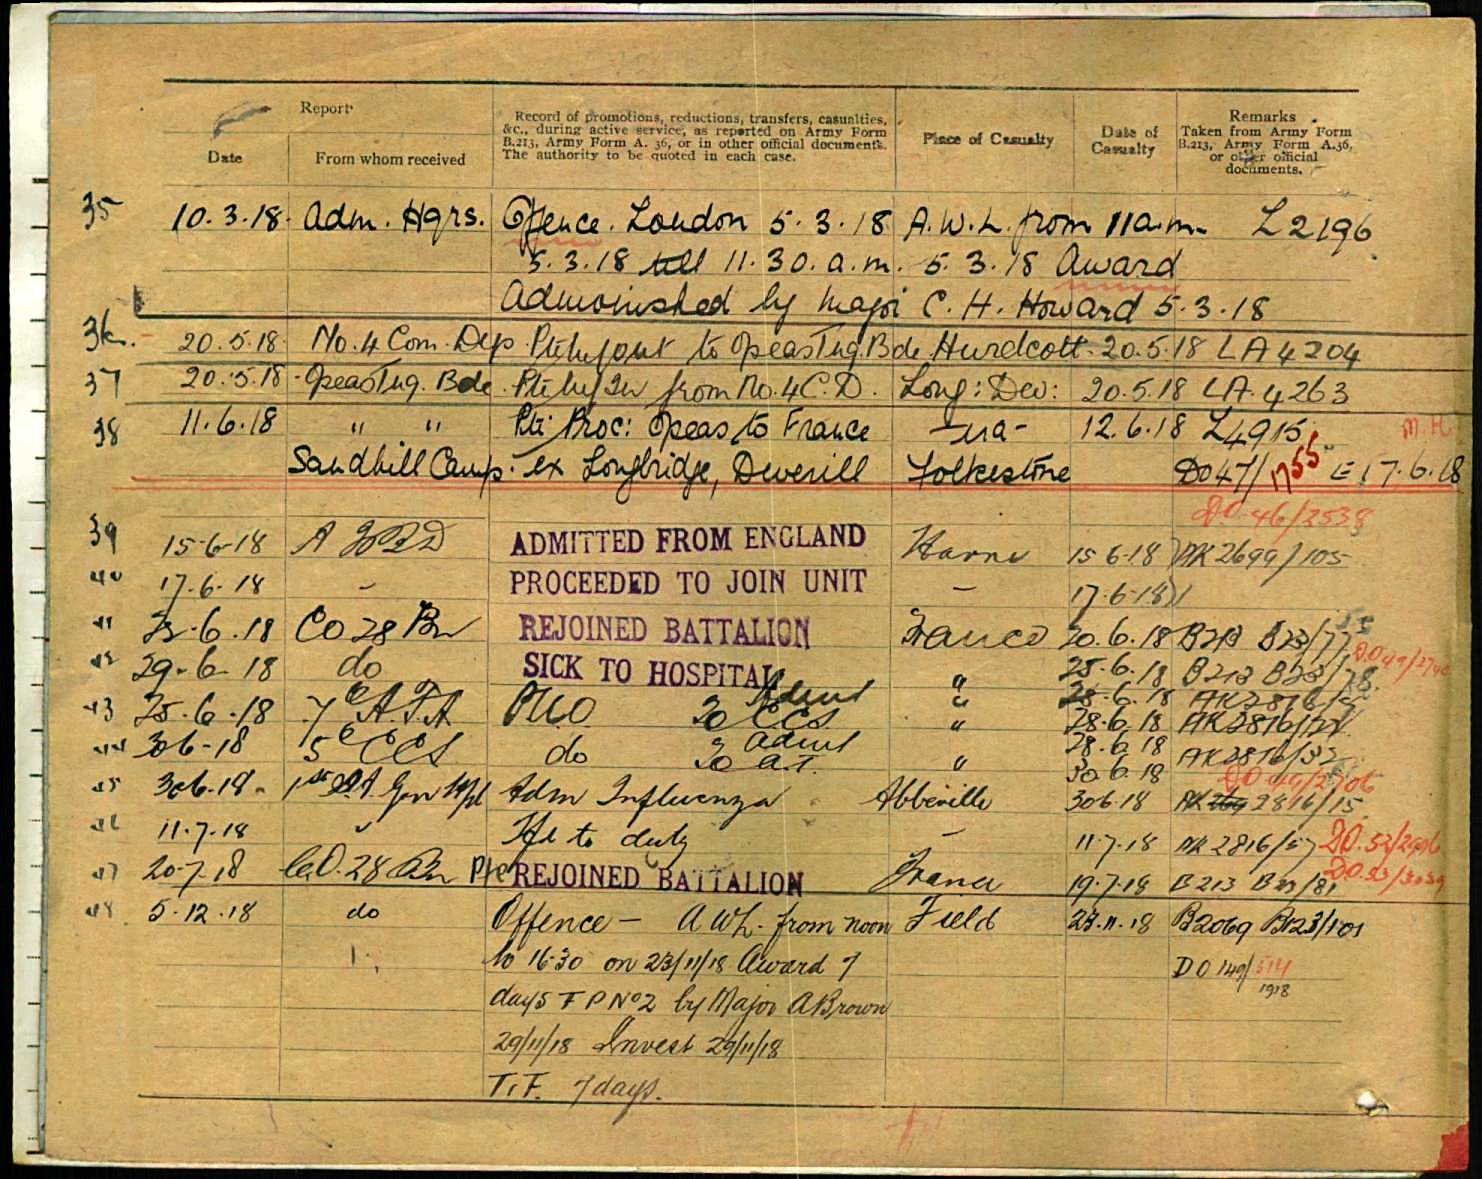 Report
Date
From whom received
Record of promotions, reductions, transfers, casualties, &c., during active service, as reported on Army Form B.213, Army Form A. 36, or in other official documents. The authority to be quoted in each case.
Place of Casualty
Date of Casualty
Remarks
Taken from Army Form B.213, Army Form A.36, or other official documents.
35 10.3.18. Adm. Hqrs. Offence. London 5.3.18 A.W.L. from 11 a.m. L2196
5.3.18 till 11.30.a.m. 5.3.18 Award
Admonished by Major C. H. Howard 5.3.18
36. 20.5.18. No. 4 Com. Dep. to Opeas Tng. Bde Hurdcott 20.5.18 LA 4204
37 20.5.18 Opeas Tng. Bde. from No. 4 C.D. Long: Dev: 20.5.18 LA 4263
38 11.6.18 " " Pte Proc: Opeas to France 12.6.18 L4915 M.H
Sandhill Camp. ex Longbridge, Deverill Folkestone DO47/ 1755 17.6.18
DO 46/2538
39 15-6-18 ADMITTED FROM ENGLAND Havre 15 6-18 AK 2699/105
40 17.6-18 - PROCEEDED TO JOIN UNIT - 17-6-18
41 .6.18 CO 28 Bn REJOINED BATTALION France 20.6.18 B213 B23/77
42 29-6-18 do SICK TO HOSPITAL " 25.6.18 B213 B23/78.
43 25-6-18 7 AFA PUO Admd " 28.6.18 AK2816/
20 CCS 28.6.18
44 30 6-18 5 CCS do admd " 28.6.18 AK2816/32
20 A.T. 30 6.18
45 30 6.18. 1st Gen Hpl Adm Influenza Abbeville 30 6.18 2816/15
46 11.7.18 " to duty - 11.7.18 AK 2816/57
47 20.7.18 C.O. 28 Bn Pte REJOINED BATTALION France 19.7.18 B213 B23/81
48 5.12.18 do Offence - AWL. from noon Field 23.11.18 B2069 B123/101
to 16.30 on 23/11/18 Award 7 DO 149/514
1918
days F P No 2 by Major A Brown
29/11/18 Invest 29/11/18
T.F. 7 days.